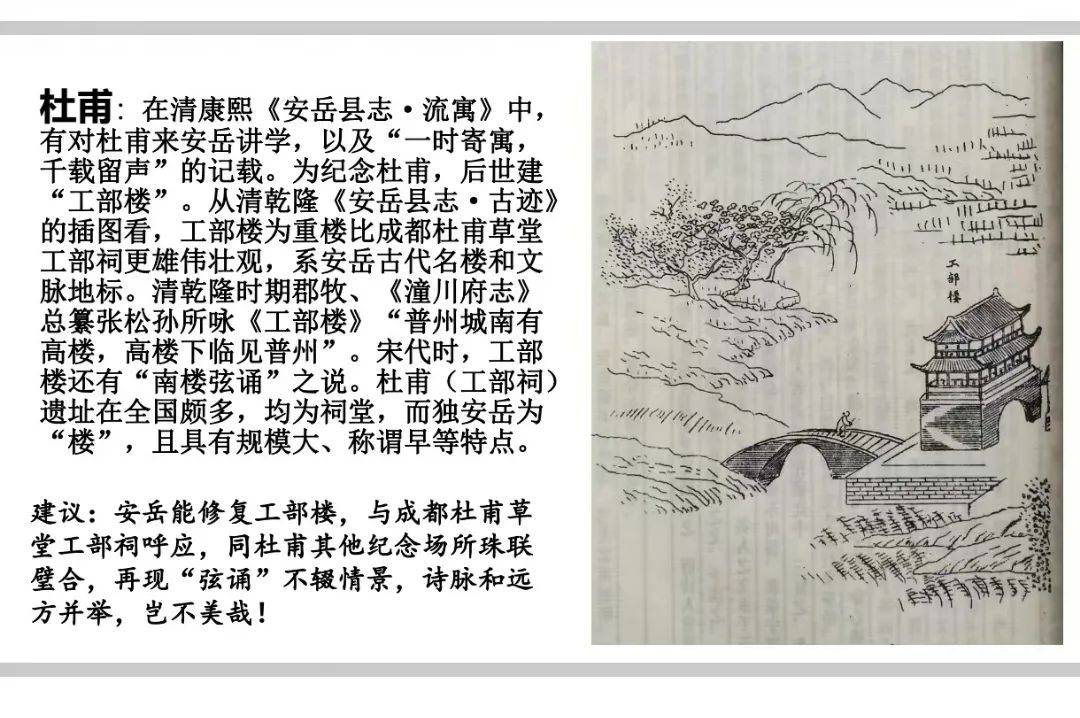 杜甫：在清康熙《安岳县志·流寓》中，
有对杜甫来安岳讲学，以及“一时寄寓，
千载留声”的记载。为纪念杜甫，后世建
“工部楼”。从清乾隆《安岳县志·古迹》
的插图看，工部楼为重楼比成都杜甫草堂
工部祠更雄伟壮观，系安岳古代名楼和文
脉地标。清乾隆时期郡牧、《潼川府志》
总纂张松孙所咏《工部楼》“普州城南有
高楼，高楼下临见普州”。宋代时，工部
楼还有“南楼弦诵”之说。杜甫（工部祠）
遗址在全国颇多，均为祠堂，而独安岳为
“楼”，且具有规模大、称谓早等特点。
建议：安岳能修复工部楼，与成都杜甫草
堂工部祠呼应，同杜甫其他纪念场所珠联
璧合，再现“弦诵”不辍情景，诗脉和远
方并举，岂不美哉！
工部楼